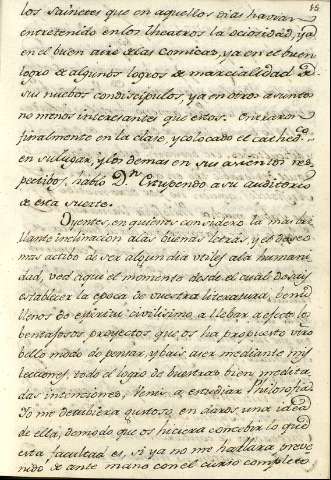 15
los saineres que en aquellos dias havian
entretenido en los theatros la ociosidad, ya
en el buen aire de las comicas, ya en el buen
logro de algunos logros de marcialidad de
sus nuebos condiscipulos, ya en otros asuntos
no menos interesantes que estos. Entraron
finalmente en la clase, y colocado el cathed.co
en su lugar, y los demas en sus asientos res-
pectibos, habló D.n Estupendo a su auditorio
de esta suerte.
Oyentes, en quienes considero la mas bri-
llante inclinacion a las buenas letras, y el deseo
mas actibo de ser algun dia utiles a la humani-
dad, ved aqui el momento desde el qual debeis
establecer la epoca de vuestra literatura, benid
llenos de espiritu civilisimo a llebar a efecto los
bentajosos proyectos que os ha propuesto vtro
bello modo de pensar, y bais a ver mediante mis
lecciones, todo el logro de buestras bien medita-
das intenciones. Venis a estudiar Philosofia,
Yo me detubiera gustoso en daros una idea
de ella, de modo que os hiciera concebir lo que
esta facultad es, si ya no me hallara preve-
nido de ante mano con el curso completo